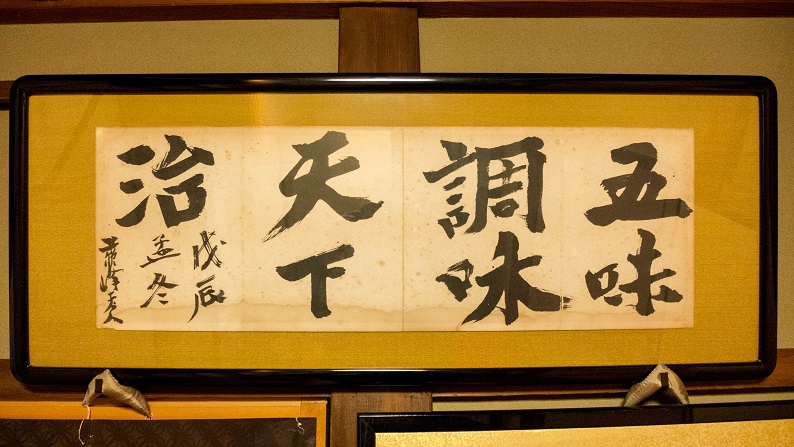 五味
調味
天下
治
戊辰
孟冬